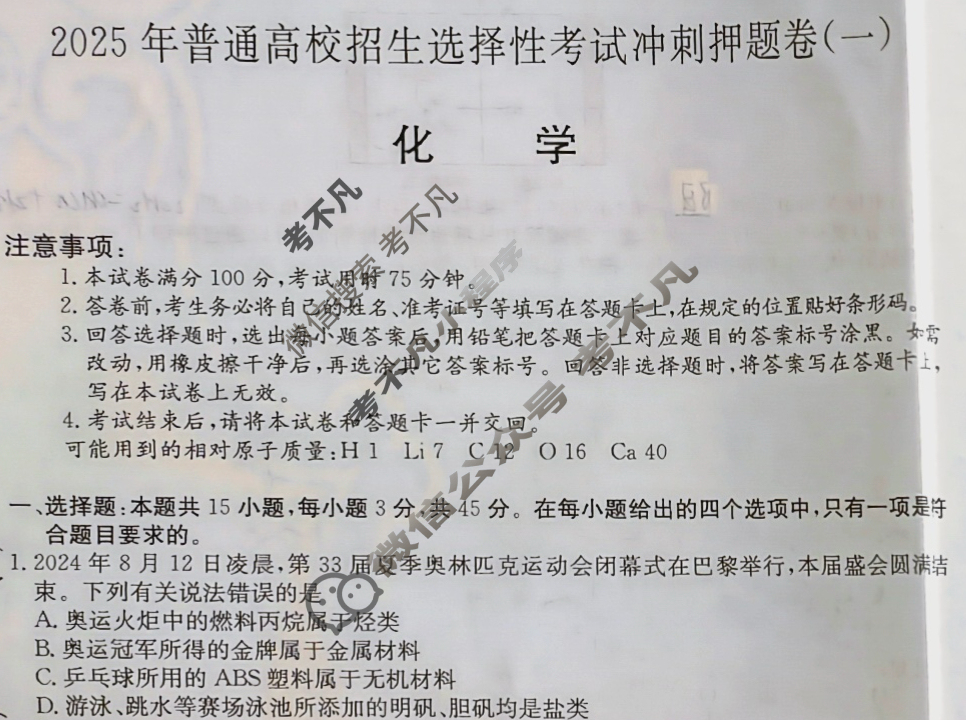 2025年普通高校招生选择性考试冲刺押题卷(一)
化 学
注意事项:
1.本试卷满分100分,考试用时75分钟。
2.答卷前,考生务必将自己的姓名、准考证号等填写在答题卡上,在规定的位置贴好条形码。
3.回答选择题时,选出每小题答案后,用铅笔把答题卡上对应题目的答案标号涂黑。如需
改动,用橡皮擦干净后,再选涂其它答案标号。回答非选择题时,将答案写在答题卡上,
写在本试卷上无效。
4.考试结束后,请将本试卷和答题卡一并交回。
可能用到的相对原子质量:H 1 Li 7 C 12 O 16 Ca 40
一、选择题:本题共15小题,每小题3分,共45分。在每小题给出的四个选项中,只有一项是符
合题目要求的。
1.2024年8月12日凌晨,第33届夏季奥林匹克运动会闭幕式在巴黎举行,本届盛会圆满结
束。下列有关说法错误的是
A.奥运火炬中的燃料丙烷属于烃类
B.奥运冠军所得的金牌属于金属材料
C.乒乓球所用的ABS塑料属于无机材料
D.游泳、跳水等赛场泳池所添加的明矾、胆矾均是盐类
考不凡
微信搜索 考不凡
考不凡小程序
微信公众号 考不凡